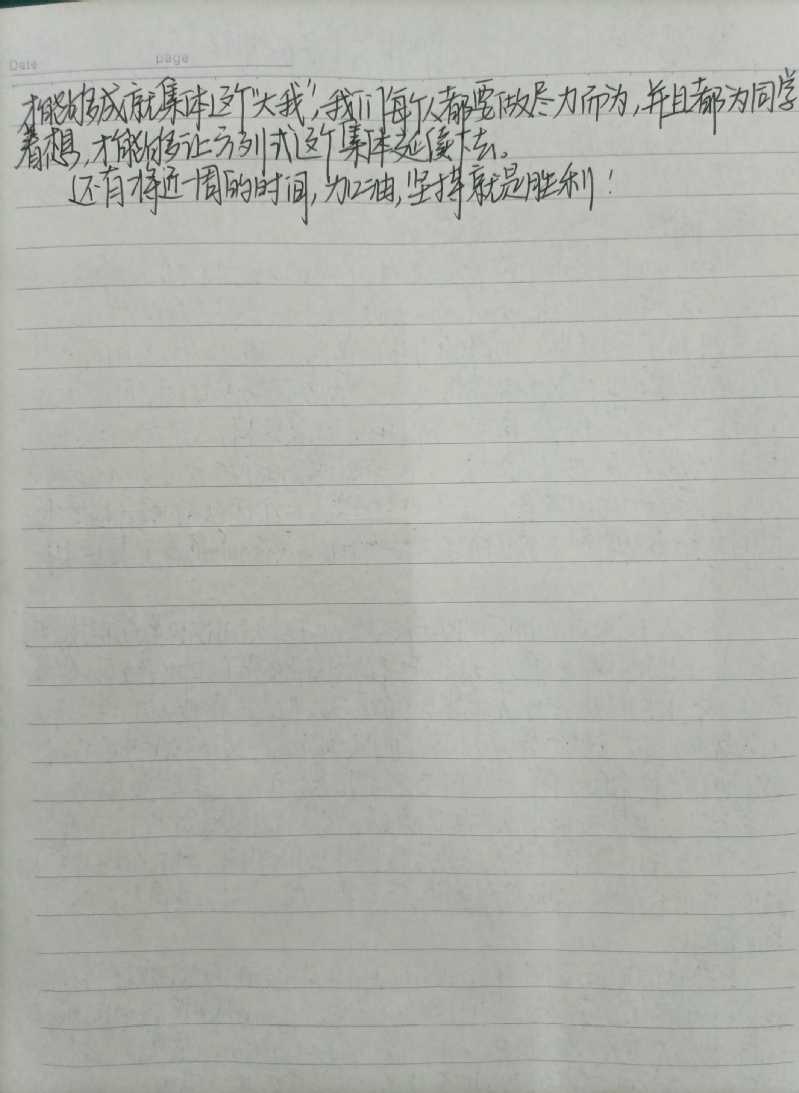 Date page
才能够成就集体这个“大我”，我们每个人都要做尽力而为，并且都为同学
着想，才能够让方列式这个集体延续下去。
还有将近一周的时间，加油，坚持就是胜利！